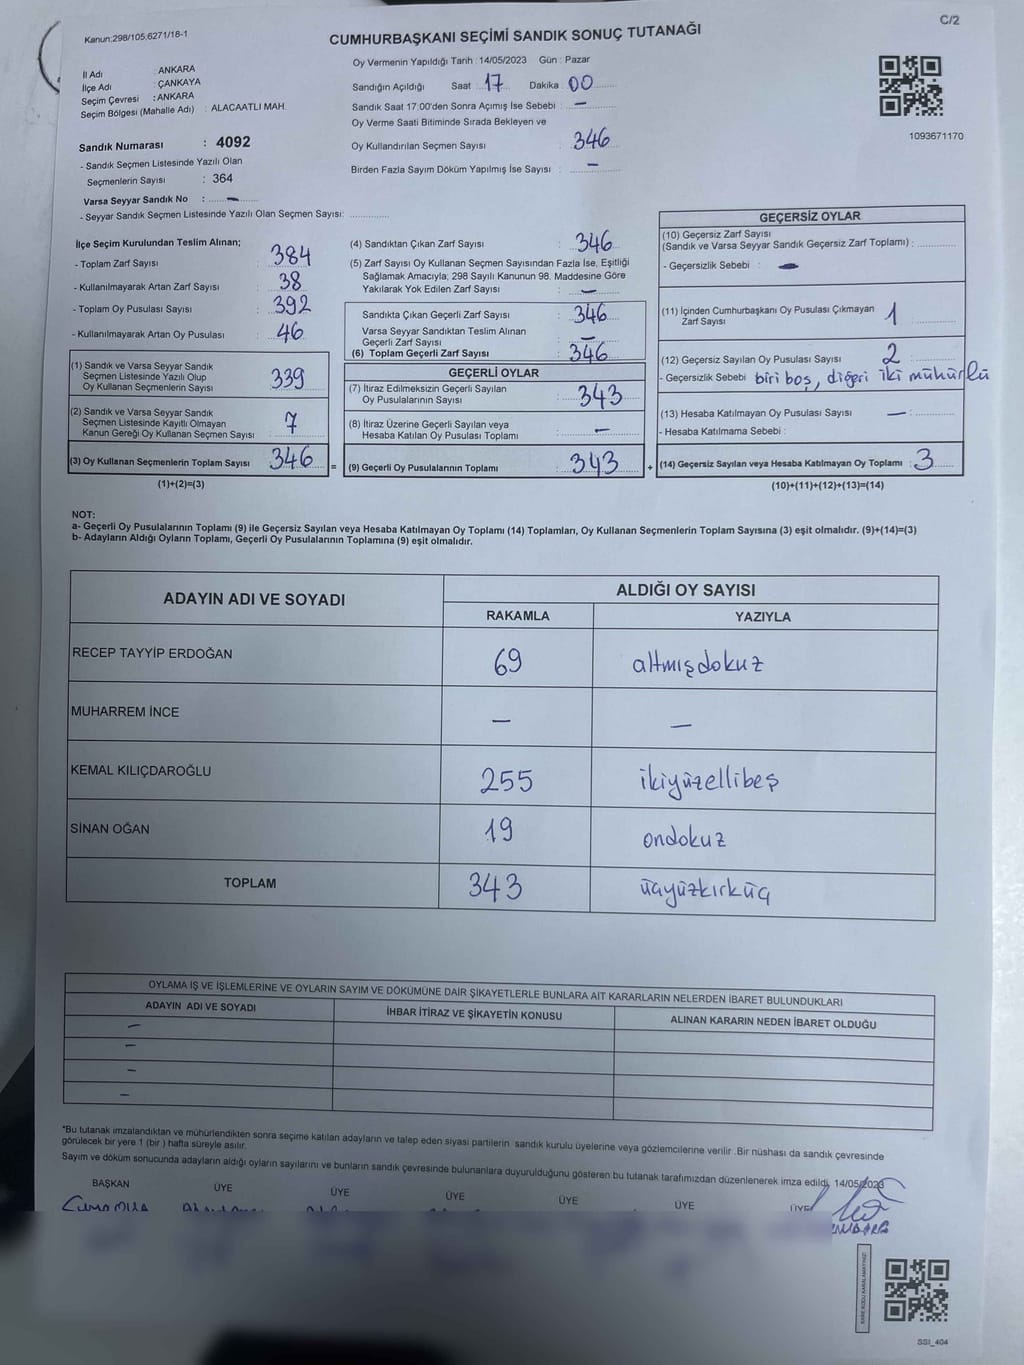 C/2
Kanun:298/105;6271/18-1
CUMHURBAŞKANI SEÇİMİ SANDIK SONUÇ TUTANAĞI
İl Adı : ANKARA
İlçe Adı : ÇANKAYA
Seçim Çevresi : ANKARA
Seçim Bölgesi (Mahalle Adı) : ALACAATLI MAH.
Sandık Numarası : 4092
- Sandık Seçmen Listesinde Yazılı Olan
Seçmenlerin Sayısı : 364
Varsa Seyyar Sandık No : —
- Seyyar Sandık Seçmen Listesinde Yazılı Olan Seçmen Sayısı:
Oy Vermenin Yapıldığı Tarih :14/05/2023 Gün : Pazar
Sandığın Açıldığı Saat 17 Dakika 00
Sandık Saat 17:00'den Sonra Açımış İse Sebebi : —
Oy Verme Saati Bitiminde Sırada Bekleyen ve
Oy Kullandırılan Seçmen Sayısı : 346
Birden Fazla Sayım Döküm Yapılmış İse Sayısı : —
1093671170
İlçe Seçim Kurulundan Teslim Alınan;
- Toplam Zarf Sayısı : 384
- Kullanılmayarak Artan Zarf Sayısı : 38
- Toplam Oy Pusulası Sayısı : 392
- Kullanılmayarak Artan Oy Pusulası : 46
(1) Sandık ve Varsa Seyyar Sandık
Seçmen Listesinde Yazılı Olup
Oy Kullanan Seçmenlerin Sayısı : 339
(2) Sandık ve Varsa Seyyar Sandık
Seçmen Listesinde Kayıtlı Olmayan
Kanun Gereği Oy Kullanan Seçmen Sayısı : 7
(3) Oy Kullanan Seçmenlerin Toplam Sayısı : 346
(1)+(2)=(3)
(4) Sandıktan Çıkan Zarf Sayısı : 346
(5) Zarf Sayısı Oy Kullanan Seçmen Sayısından Fazla İse, Eşitliği
Sağlamak Amacıyla; 298 Sayılı Kanunun 98. Maddesine Göre
Yakılarak Yok Edilen Zarf Sayısı : —
Sandıkta Çıkan Geçerli Zarf Sayısı : 346
Varsa Seyyar Sandıktan Teslim Alınan
Geçerli Zarf Sayısı : —
(6) Toplam Geçerli Zarf Sayısı : 346
GEÇERLİ OYLAR
(7) İtiraz Edilmeksizin Geçerli Sayılan
Oy Pusulalarının Sayısı : 343
(8) İtiraz Üzerine Geçerli Sayılan veya
Hesaba Katılan Oy Pusulası Toplamı : —
= (9) Geçerli Oy Pusulalarının Toplamı : 343
GEÇERSİZ OYLAR
(10) Geçersiz Zarf Sayısı
(Sandık ve Varsa Seyyar Sandık Geçersiz Zarf Toplamı) :
- Geçersizlik Sebebi : —
(11) İçinden Cumhurbaşkanı Oy Pusulası Çıkmayan
Zarf Sayısı : 1
(12) Geçersiz Sayılan Oy Pusulası Sayısı : 2
- Geçersizlik Sebebi biri boş, diğeri iki mühürlü
(13) Hesaba Katılmayan Oy Pusulası Sayısı : —
- Hesaba Katılmama Sebebi :
+ (14) Geçersiz Sayılan veya Hesaba Katılmayan Oy Toplamı : 3
(10)+(11)+(12)+(13)=(14)
NOT:
a- Geçerli Oy Pusulalarının Toplamı (9) ile Geçersiz Sayılan veya Hesaba Katılmayan Oy Toplamı (14) Toplamları, Oy Kullanan Seçmenlerin Toplam Sayısına (3) eşit olmalıdır. (9)+(14)=(3)
b- Adayların Aldığı Oyların Toplamı, Geçerli Oy Pusulalarının Toplamına (9) eşit olmalıdır.
ADAYIN ADI VE SOYADI
ALDIĞI OY SAYISI
RAKAMLA YAZIYLA
RECEP TAYYİP ERDOĞAN 69 altmışdokuz
MUHARREM İNCE — —
KEMAL KILIÇDAROĞLU 255 ikiyüzellibeş
SİNAN OĞAN 19 ondokuz
TOPLAM 343 üçyüzkırküç
OYLAMA İŞ VE İŞLEMLERİNE VE OYLARIN SAYIM VE DÖKÜMÜNE DAİR ŞİKAYETLERLE BUNLARA AİT KARARLARIN NELERDEN İBARET BULUNDUKLARI
ADAYIN ADI VE SOYADI İHBAR İTİRAZ VE ŞİKAYETİN KONUSU ALINAN KARARIN NEDEN İBARET OLDUĞU
—
—
—
—
*Bu tutanak imzalandıktan ve mühürlendikten sonra seçime katılan adayların ve talep eden siyasi partilerin sandık kurulu üyelerine veya gözlemcilerine verilir .Bir nüshası da sandık çevresinde
görülecek bir yere 1 (bir ) hafta süreyle asılır.
Sayım ve döküm sonucunda adayların aldığı oyların sayılarını ve bunların sandık çevresinde bulunanlara duyurulduğunu gösteren bu tutanak tarafımızdan düzenlenerek imza edildi. 14/05/2023
BAŞKAN ÜYE ÜYE ÜYE ÜYE ÜYE ÜYE
KARE KODU KARALAMAYINIZ!
SSI_404